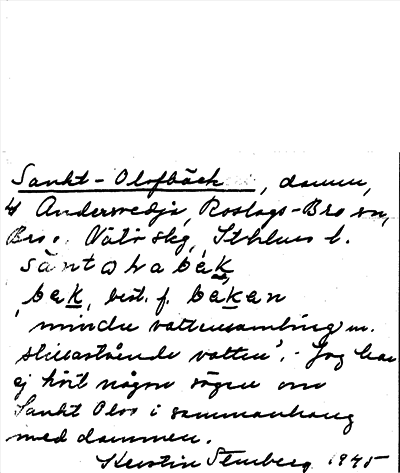 Sankt-Olofbäck, damm,
4 Andersvedja, Roslags-Bro sn,
Bro o. Vätö skg, Sthlms l.
sàntωhabέk,
bεk, best. f. bεkεn
'mindre vattensamling m.
stillastående vatten'. - Jag har
ej hört någon sägen om
Sankt Olov i sammanhang
med dammen.
Kerstin Stenberg 1945